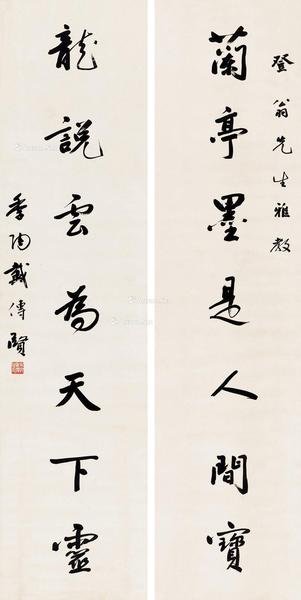 登翁先生雅教
蘭亭墨是人間寶
龍說雲為天下靈
季陶戴傳賢